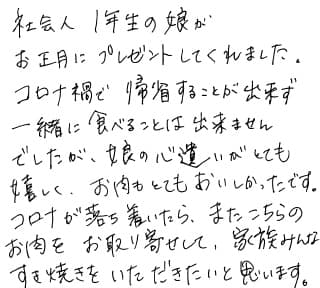 社会人 1年生の娘が
お正月に プレゼントしてくれました。
コロナ禍で 帰省することが出来ず
一緒に食べることは出来ません
でしたが、娘の心遣いがとても
嬉しく、お肉もとてもおいしかったです。
コロナが落ち着いたら、またこちらの
お肉を お取り寄せして、家族みんな
すき焼きをいただきたいと思います。